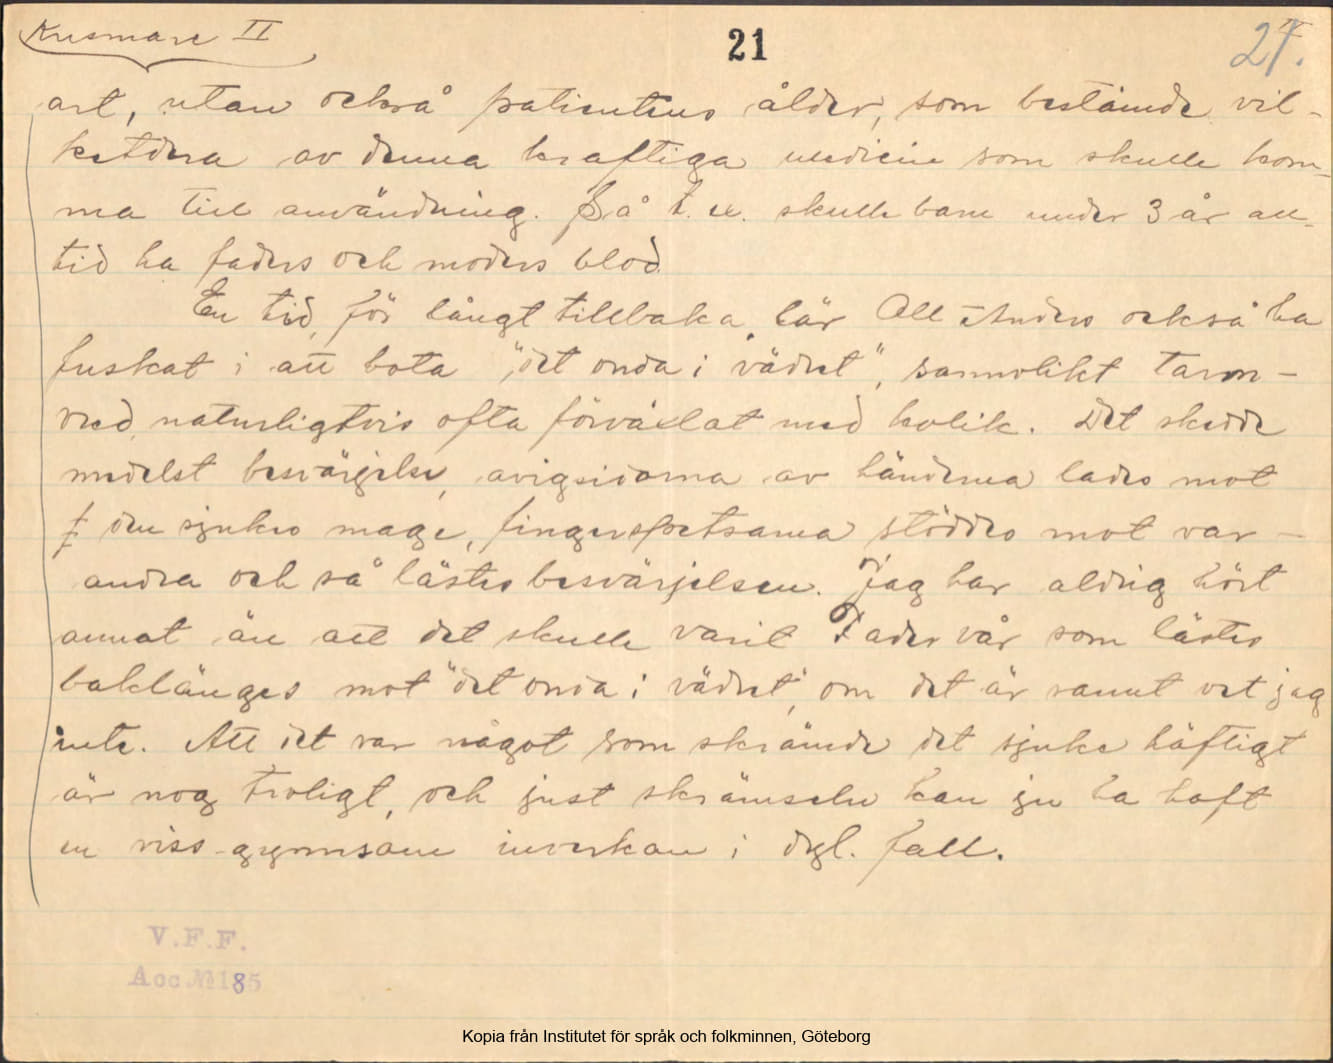 Krusmare II
21
27.
art, utan också patientens ålder, som bestämde vil-
ketdera av denna kraftiga medicin som skulle kom-
ma till användning. Så t. ex. skulle barn under 3 år all-
tid ha faders och moders blod.
En tid, för långt tillbaka, lär All Anders också ha
fuskat i att bota "det onda i vädret", sannolikt tarm-
vred, naturligtvis ofta förväxlat med kolik. Det skedde
medelst besvärjelse, avigsidorna av händerna lades mot
den sjukes mage, fingerspetsarna stöddes mot var-
andra och så lästes besvärjelsen. Jag har aldrig hört
annat än att det skulle varit Fader vår som lästes
baklänges mot "det onda i vädret", om det är sannt vet jag
inte. Att det var något som skrämde det sjuke häftigt
är nog troligt, och just skrämseln kan ju ha haft
en viss gynnsam inverkan i dyl. fall.
V.F.F.
Acc № 185
Kopia från Institutet för språk och folkminnen, Göteborg